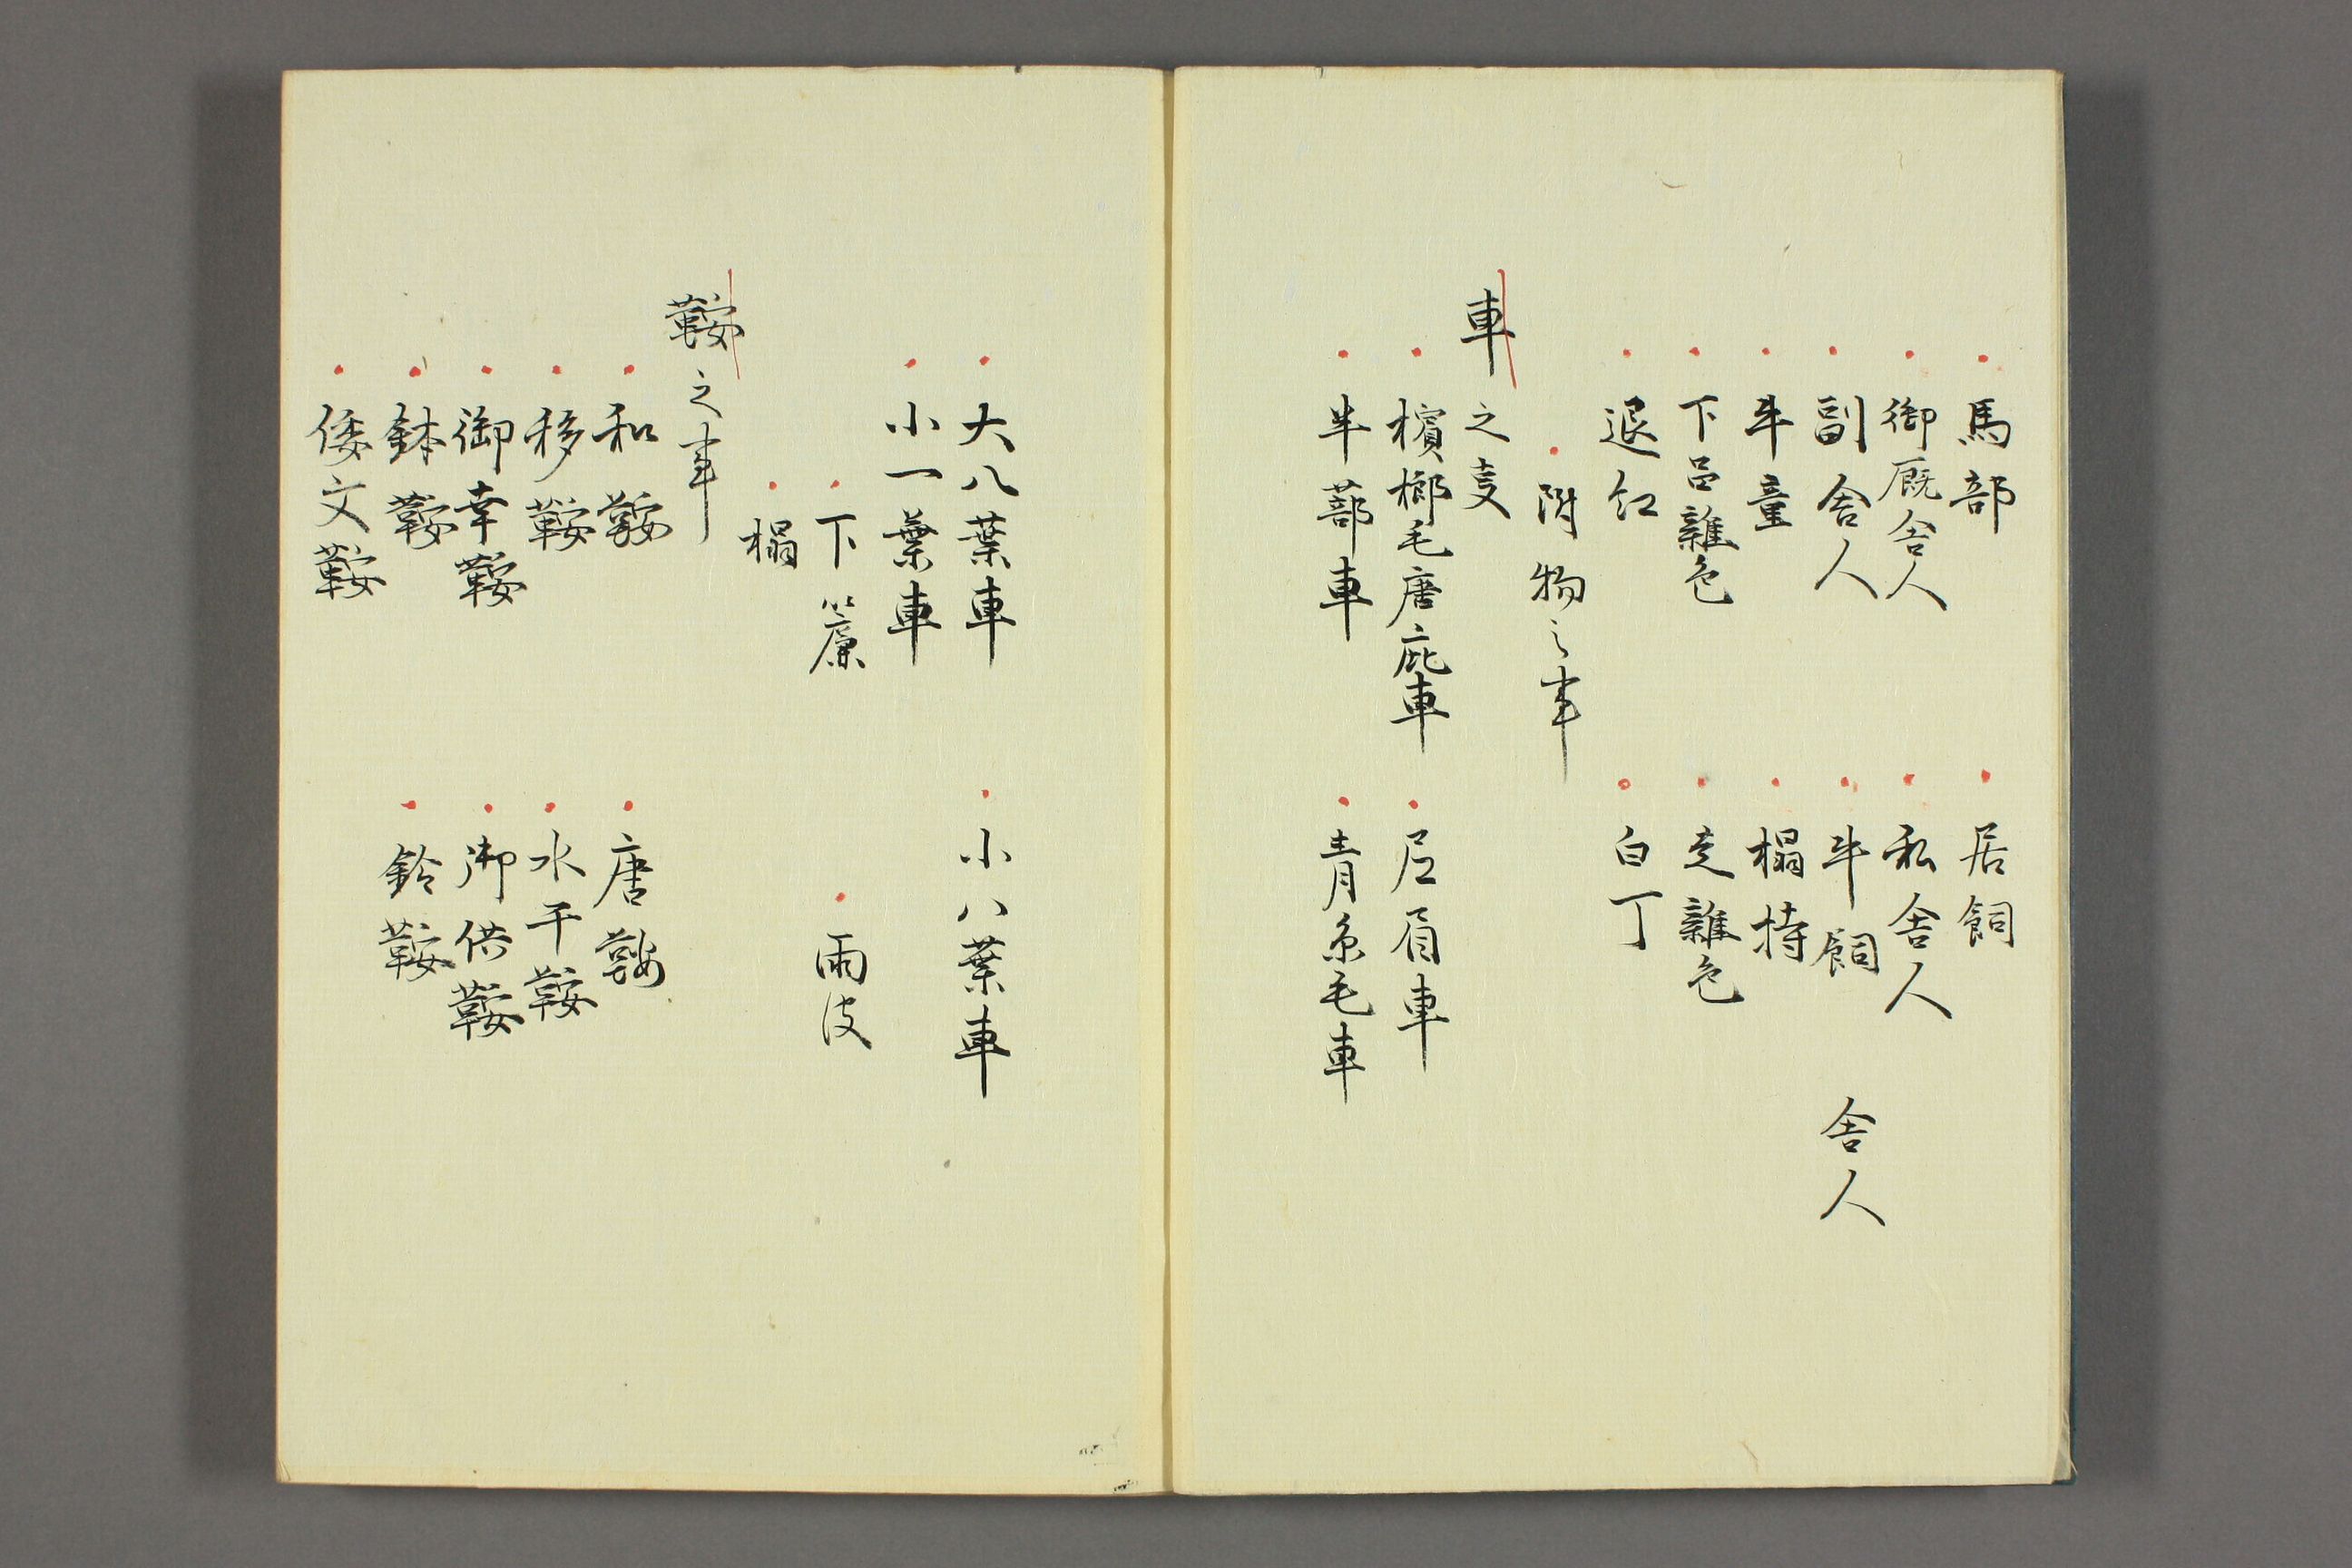 馬部　居飼
御厩舎人　私舎人
副舎人　牛飼　舎人
牛童　榻持
下呂雑色　走雑色
退紅　白丁
附物之事
車之㕝
檳榔毛唐庇車　眉車
半蔀車　青糸毛車
大八葉車　小八葉車
小一葉車
下簾　雨皮
榻
鞍之事
和鞍　唐鞍
移鞍　水干鞍
御幸鞍　御供鞍
鉢鞍　鈴鞍
倭文鞍